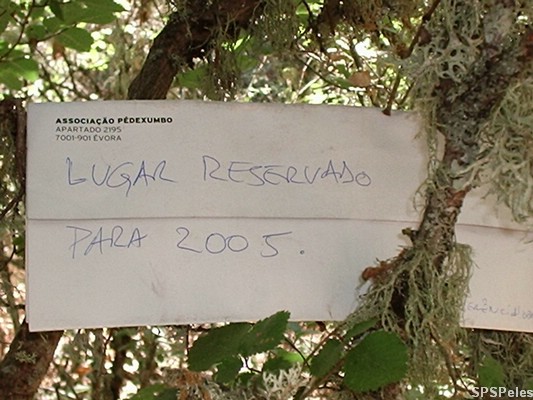 ASSOCIAÇÃO PÉDEXUMBO
APARTADO 2195
7001-901 ÉVORA
LUGAR RESERVADO
PARA 2005.
SPSPeles